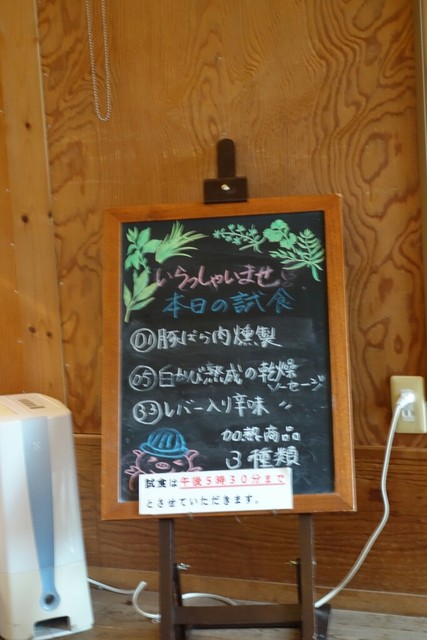 いらっしゃいませ
本日の試食
01 豚ばら肉燻製
05 白かび熟成の乾燥
ソーセージ
33 レバー入り辛味 〃
加熱商品
3種類
試食は午後5時30分まで
とさせていただきます。